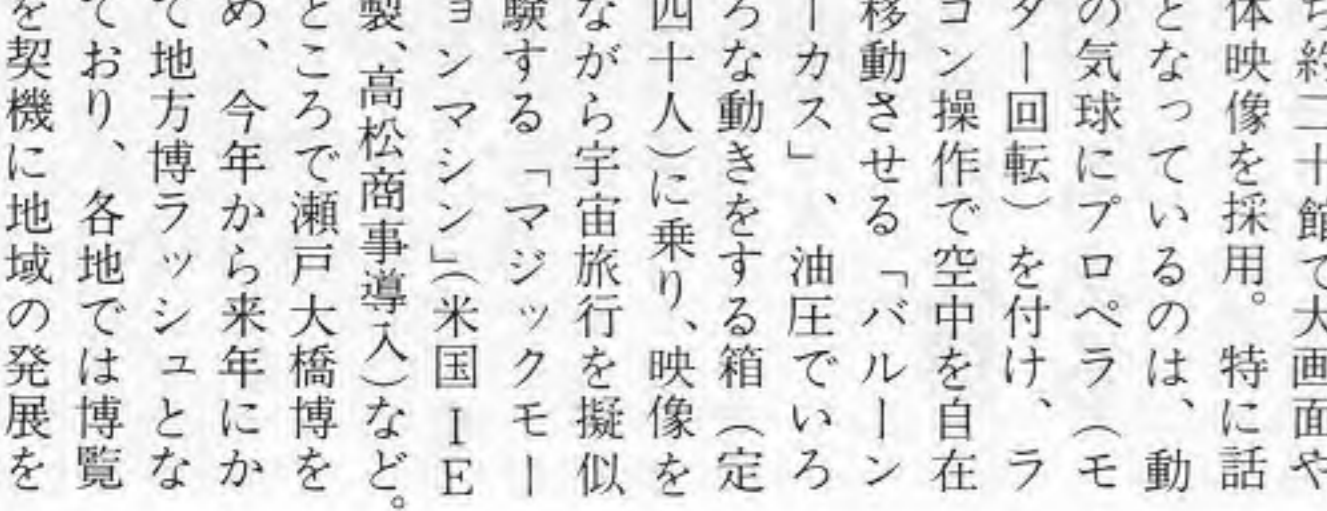 ち約二十館で大画面や
体映像を採用。特に話
となっているのは、動
の気球にプロペラ(モ
ター回転)を付け、ラ
コン操作で空中を自在
移動させる「バルーン
ーカス」、油圧でいろ
ろな動きをする箱(定
四十人)に乗り、映像を
ながら宇宙旅行を擬似
験する「マジックモー
ョンマシン」(米国IE
製、高松商事導入)など。
ところで瀬戸大橋博を
め、今年から来年にか
て地方博ラッシュとな
ており、各地では博覧
を契機に地域の発展を